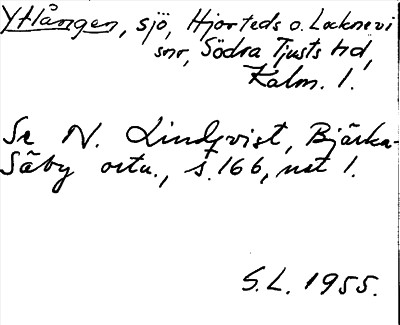 Ytlången, sjö, Hjorteds o. Locknevi
snr, Södra Tjusts hd,
Kalm. l.
Se N. Lindqvist, Bjärka-
Säby ortn., s. 166, not 1.
S.L. 1955.